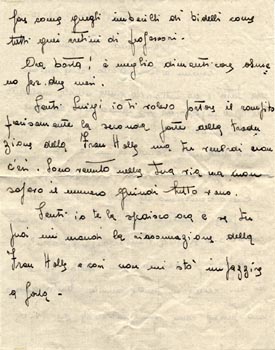 per come quegli imbecilli di bidelli come
tutti quei cretini di professori.
Ora basta! è meglio dimenticare almeno
no per due mesi.
Senti Luigi io ti volevo portare il compito
la seconda parte della tradu
zione della Frau Holle ma tu
. Sono venuto nella tua via ma non
sapevo il numero quindi tutto vano.
Senti io te la spedisco ora e se tu
puoi mi mandi la riassunzione della
Frau Holle e così non mi stò
a farla -